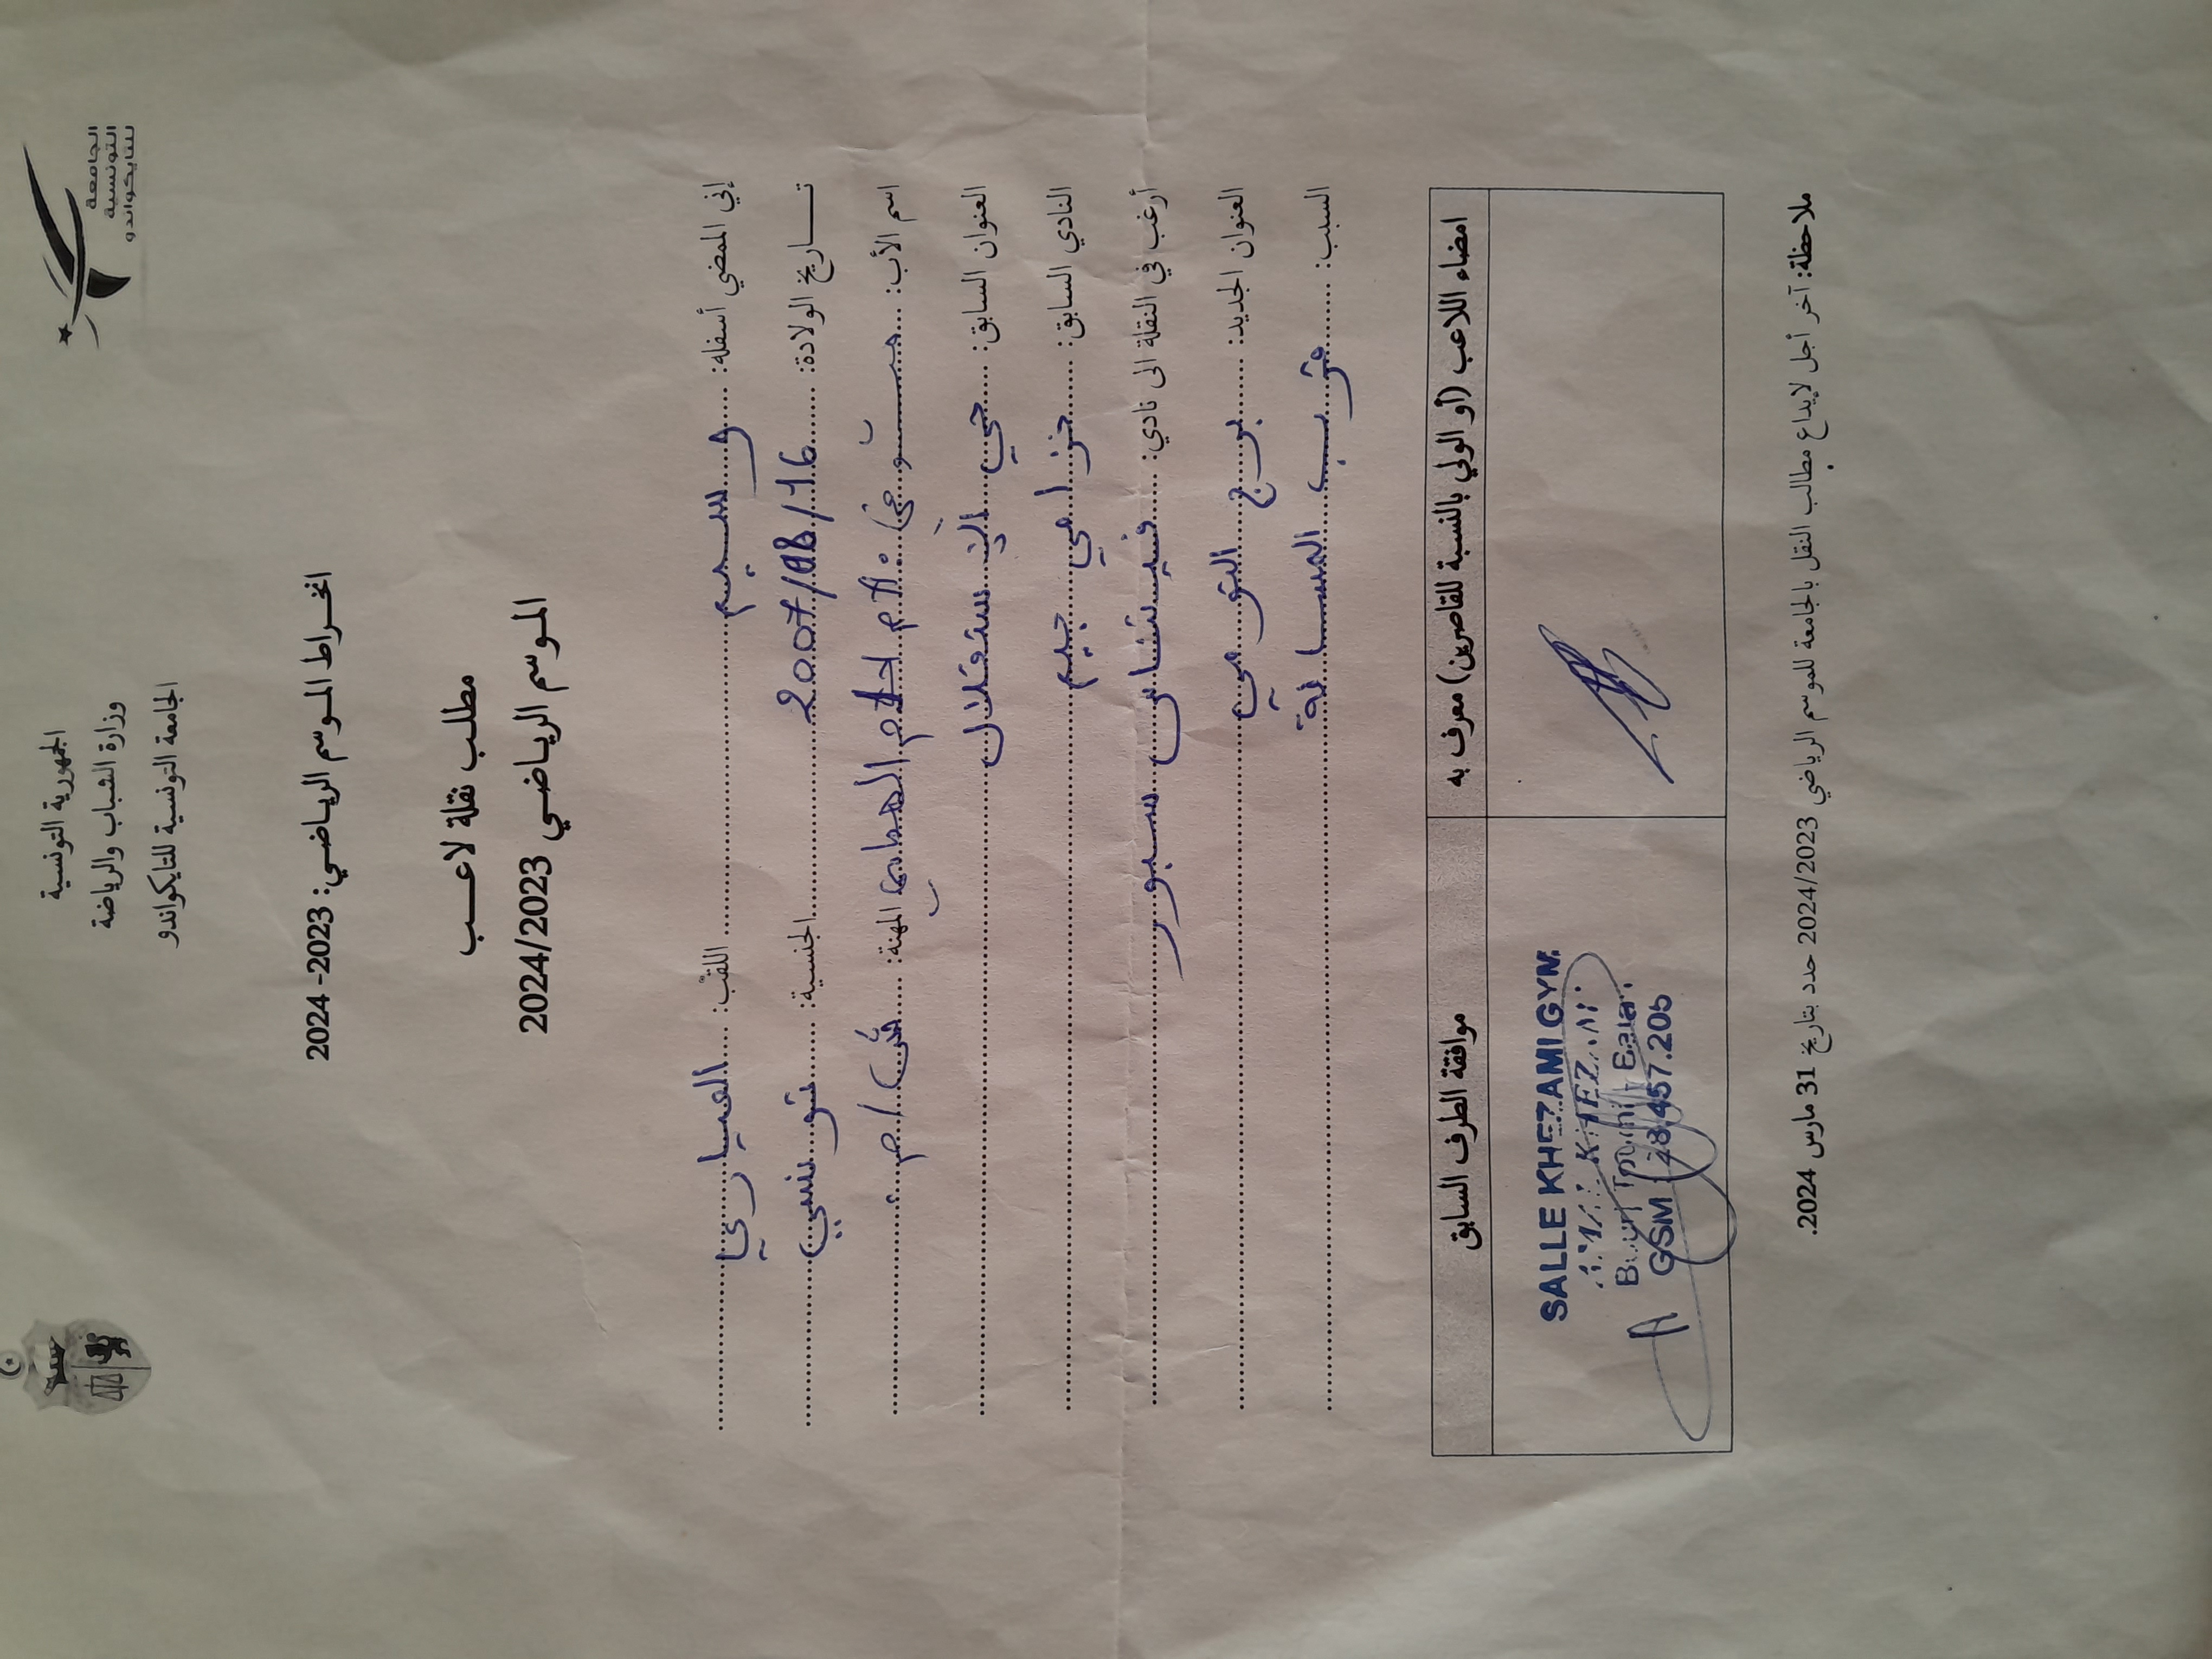 الجمهورية التونسية
وزارة الشباب والرياضة
الجامعة التونسية للتايكواندو
الجامعة
التونسية
للتايكواندو
انخراط الموسم الرياضي: 2023-2024
مطلب نقلة لاعب
الموسم الرياضي 2024/2023
إني الممضي أسفله: وسيم اللقب: العياري
تاريخ الولادة: 2007/08/16 الجنسية: تونسي
اسم الأب: المهنة:
العنوان السابق: حي الإستقلال
النادي السابق: خزامي جيم
أرغب في النقلة الى نادي: فيتناس سبور
العنوان الجديد: برج التومي
السبب: قرب المسافة
امضاء اللاعب (أو الولي بالنسبة للقاصرين) معرف به
موافقة الطرف السابق
SALLE KHEZAMI GYM
KHEZAMI
GSM 28.457.206
ملاحظة: آخر أجل لإيداع مطالب النقل بالجامعة للموسم الرياضي 2024/2023 حدد بتاريخ 31 مارس 2024.